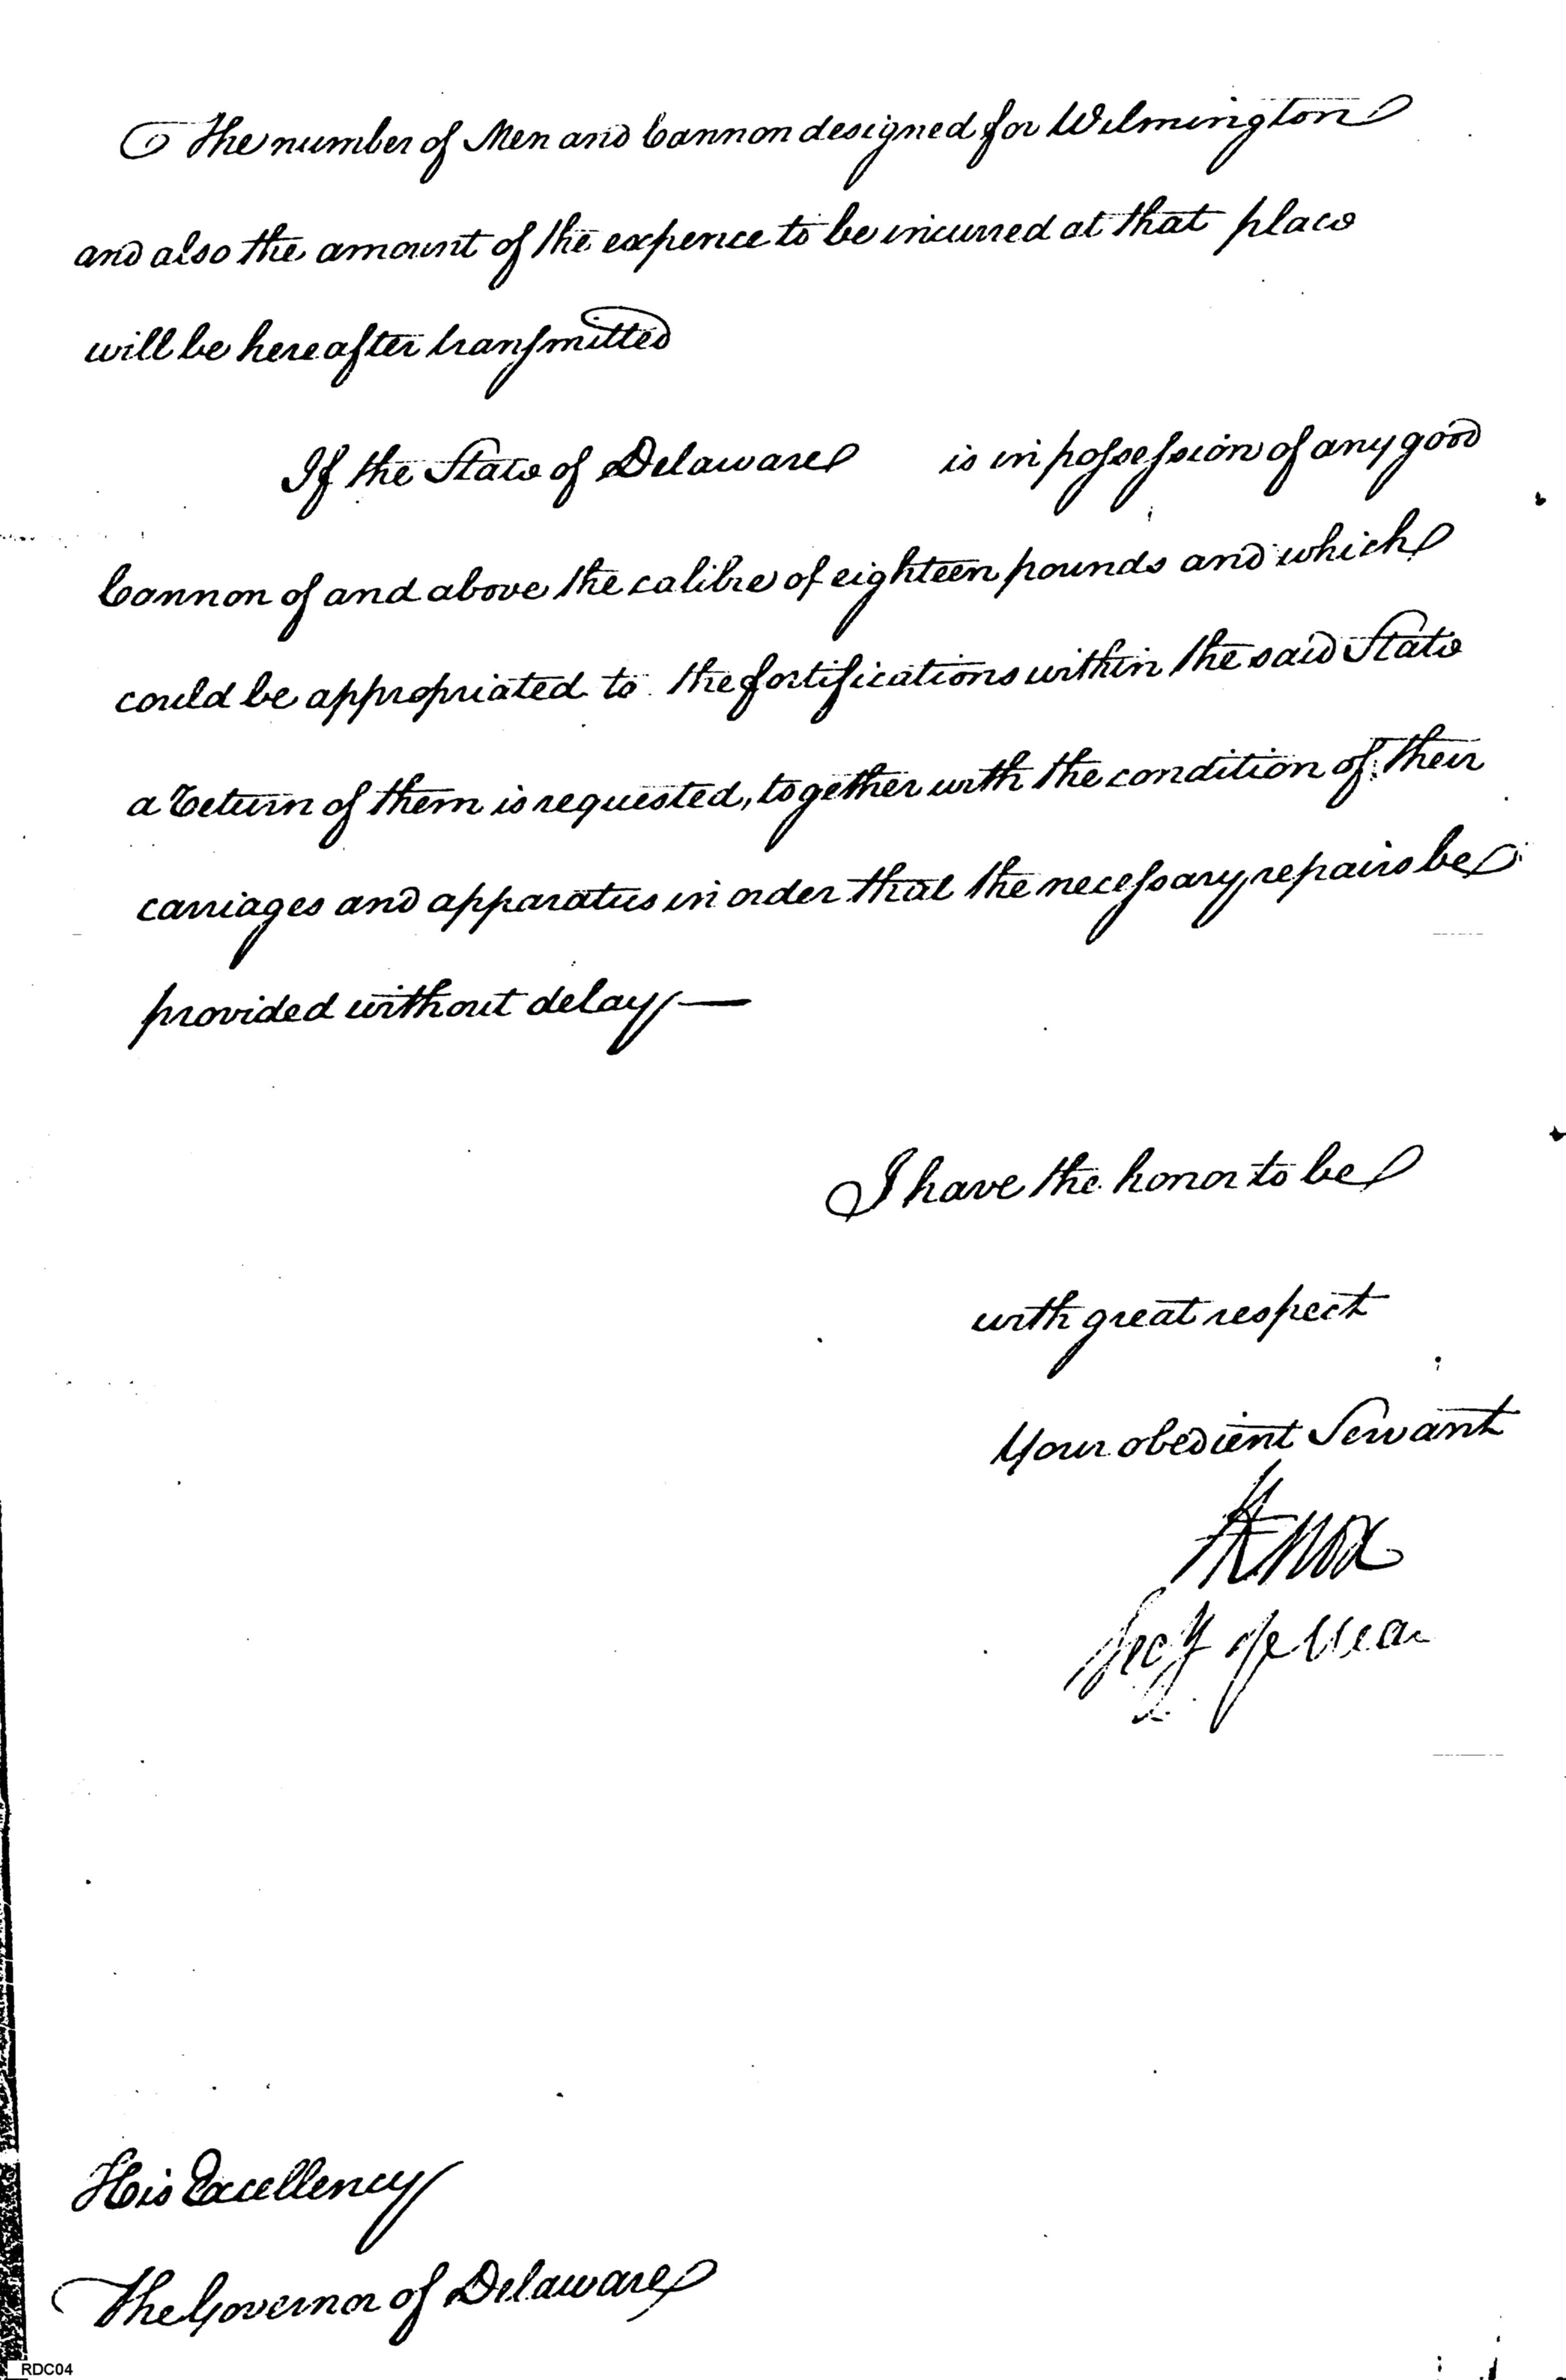 The number of Men and Cannon designed for Wilmington
and also the amount of the expence to be incurred at that place
will be hereafter transmitted
If the State of Delaware is in possession of any good
Cannon of and above the calibre of eighteen pounds and which
could be appropriated to the fortifications within the said State
a Return of them is requested, together with the condition of their
carriages and apparatus in order that the necessary repairs be
provided without delay —
I have the honor to be
with great respect
Your obedient Servant
HKnox
Secy of War
His Excellency
The Governor of Delaware
RDC04